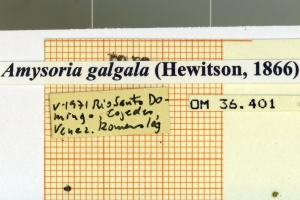 Amysoria galgala (Hewitson, 1866)
V-1971 Rio Santo Do-
mingo, Cojedes,
Venez. Romero leg
OM 36.401